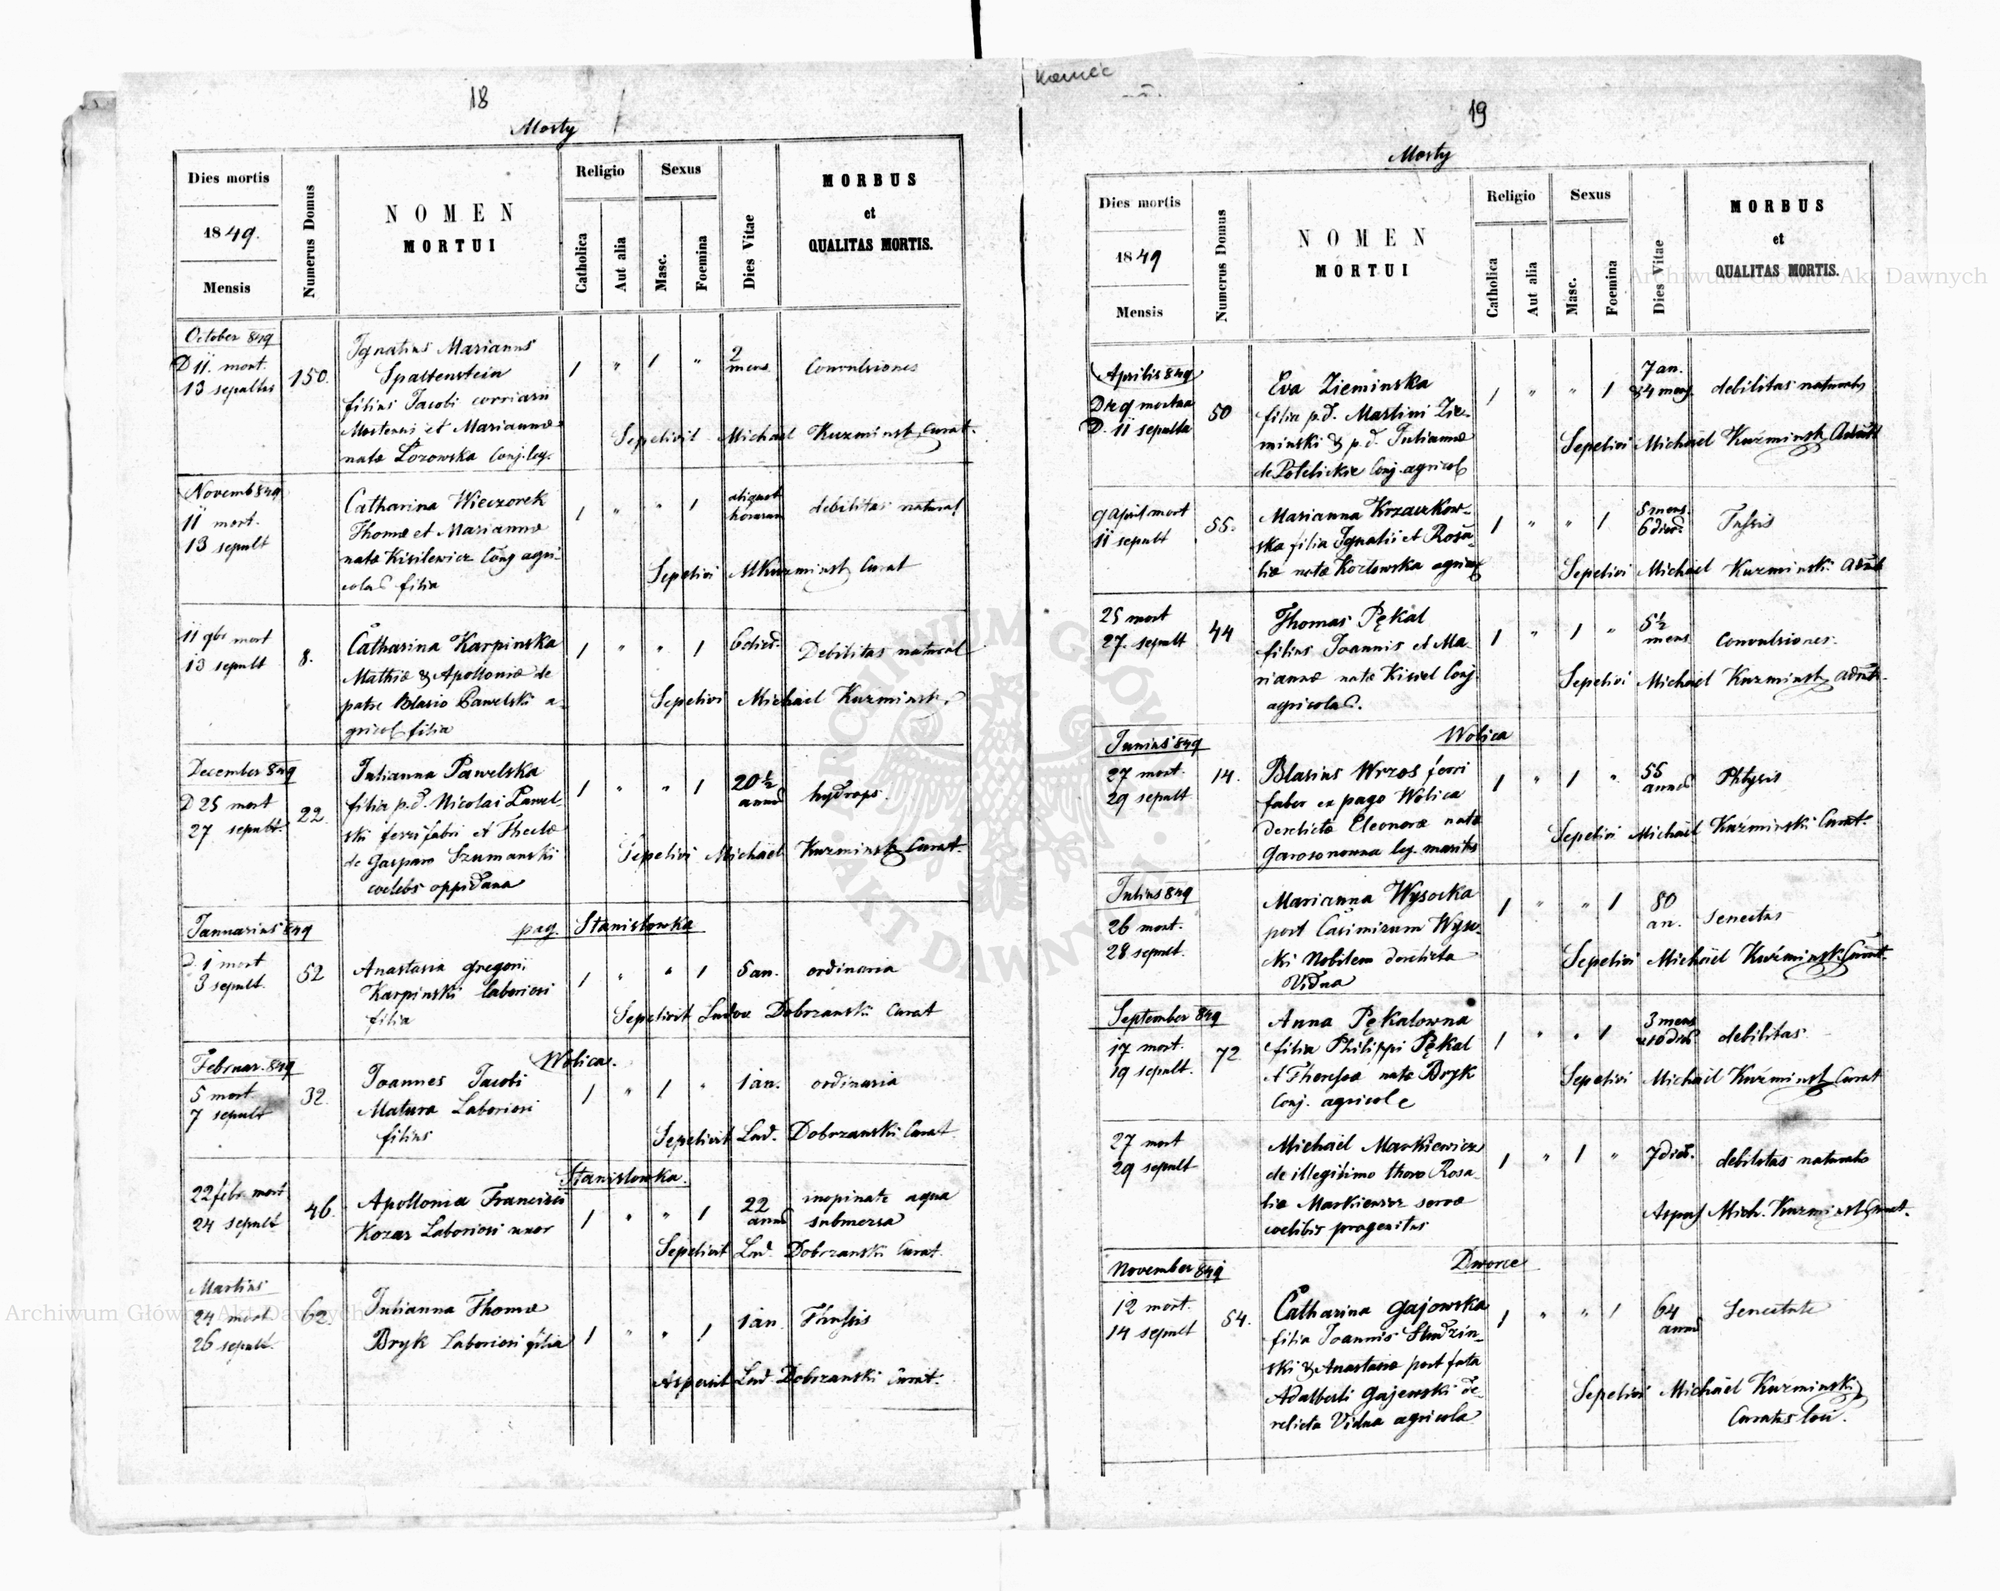 Kamec
18
Mosty
Dies mortis
1849.
Mensis
Numerus Domus
NOMEN
MORTUI
Religio
Catholica
Aut alia
Sexus
Masc.
Foemina
Dies Vitae
MORBUS
et
QUALITAS MORTIS.
October 849
D 11. mort.
13 sepultus
150.
Ignatius Marianus
Spaltenstein
filius Jacobi corriarii
Mostensis et Mariannæ
natæ Łozowska Conj. leg.
1 " 1 "
2
mens
Convulsiones
Sepelivit Michael Kuzminski Curat.
Novemb 849
11 mort.
13 sepult
Catharina Wieczorek
Thomæ et Mariannæ
natæ Kisilewicz Conj agri-
colar filia
1 " " 1
aliquot
horarum
debilitas natural
Sepelivi MKuzminski Curat
11 9br mort
13 sepult
8.
Catharina Karpinska
Mathiæ & Apolloniæ de
patre Blasio Pawelski a-
gricol filia
1 " " 1
6 dier.
Debilitas natural
Sepelivi Michael Kuzminski
December 849
D 25 mort
27 sepult.
22
Julianna Pawelska
filia p.d. Nicolai Pawel-
ski ferrifabri et Theclæ
de Gasparo Szumanski
coelebs oppidana
1 " " 1
20 ½
annor
hydrops.
Sepelivi Michael Kuzminski Curat.
Januarius 849
pag. Stanislowka
D 1 mort
3 sepult.
52
Anastasia Gregorii
Karpinski laboriosi
filia
1 " " 1
5 an.
ordinaria
Sepelivit Ludov Dobrzanski Curat
Februar. 849
Wolica.
5 mort
7 sepult
32.
Joannes Jacobi
Matura Laboriosi
filius
1 " 1 "
1 an.
ordinaria
Sepelivit Lud. Dobrzanski Curat.
Stanislowka.
22 febr mort
24 sepult
46.
Apollonia Francisci
Kozar Laboriosi uxor
1 " " 1
22
annor
inopinate aqua
submersa
Sepelivit Lud. Dobrzanski Curat.
Martius
24 mort
26 sepult.
62
Julianna Thomæ
Bryk Laboriosi filia
1 " " 1
1 an.
Aspersit Lud. Dobrzanski Curat.
19
Mosty
Dies mortis
1849
Mensis
Numerus Domus
NOMEN
MORTUI
Religio
Catholica
Aut alia
Sexus
Masc.
Foemina
Dies Vitae
MORBUS
et
QUALITAS MORTIS.
Aprilis 849
Die 9 mortua
D. 11 sepulta
50
Eva Zieminska
filia p.d. Martini Zie-
minski & p.d. Juliannæ
de Potelickie Conj. agricol
1 " " 1
7 an.
& 4 mens
debilitas naturalis
Sepelivi Michael Kuźminski
9 April mort
11 sepult
55.
Marianna Krzaczkow-
ska filia Ignatii et Rosa-
liæ natæ Kozlowska agricol
1 " " 1
5 mens
6 dier.
Tussis
Sepelivi Michael Kuzminski
25 mort
27. sepult
44
Thomas Pękal
filius Joannis et Ma-
riannæ natæ Kissel Conj
agricolar.
1 " 1 "
5½
mens
Convulsiones.
Sepelivi Michael Kuzminski
Junius 849
Wolica
27 mort.
29 sepult
14.
Blasius Wrzos ferri
faber ex pago Wolica
derelictæ Eleonoræ natæ
leg. maritus
1 " 1 "
55
annor
Phtysis
Sepelivi Michael Kuźminski Curat.
Julius 849
26 mort.
28 sepult.
Marianna Wysocka
post Casimirum Wyso-
cki Nobilem derelicta
Vidua
1 " " 1
80
an.
Senectus
Sepelivi Michaël Kuźminski Curat.
September 849
17 mort.
19 sepult.
72
Anna Pękalowna
filia Philippi Pękal
& Theresæ natæ Bryk
Conj. agricolæ
1 " " 1
3 mens
10 dier
debilitas
Sepelivi Michael Kuźminski Curat
27 mort
29 sepult
Michael Markiewicz
de illegitimo thoro Rosa-
liæ Markiewicz servæ
coelibis progenitus
1 " 1 "
7 dier.
debilitas naturalis
Aspersi Mich. Kuzminski Curat.
November 849
Dworce
12 mort.
14 sepult
54.
Catharina Gajowska
filia Joannis Studzin-
ski & Anastasiæ post fata
Adalberti Gajewski de-
relicta Vidua agricola
1 " " 1
64
annor
Senectute
Sepelivi Michael Kuzminski
Curatus loci.
Archiwum Główne Akt Dawnych
Archiwum Główne Akt Dawnych
ARCHIWUM GŁÓWNE
AKT DAWNYCH